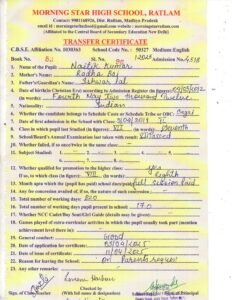 MORNING STAR HIGH SCHOOL, RATLAM
Contact: 9981168926, Dist. Ratlam, Madhya Pradesh
(Affiliated to the Central Board of Secondary Education New Delhi)
TRANSFER CERTIFICATE
C.B.S.E. Affiliation No. 1030363 School Code No. : 50327 Medium: English
Book No. Sl. No. Admission No. 4518
1. Name of the Pupil Naitik Kumar
2. Mother's Name Radha Bai
3. Father's/Guardian's Name Ishwar lal
4. Date of birth(in Christian Era) according to Admission Register (in figures)
(in words) Fourth May Two thousand Twelve
5. Nationality Indian
6. Whether the candidate belongs to Schedule Caste or Schedule Tribe or OBC:
7. Date of first admission in the School with Class
8. Class in which pupil last Studied (in figures) VII (in words) Seventh
9. School/Board's Annual Examination last taken with result
10. Whether failed, if so once/twice in the same class
11. Subject Studied
12. Whether qualified for promotion to the higher class: yes
If so, to which class (in figures) VIII (in words) Eighth
13. Month upto which the (pupil has paid) school dues/paid Full Session Paid
14. Any fee concession availed of: if so, the nature of such concession
15. Total number of working days: 220
16. Total number of working days pupil present in school
17. Whether NCC Cadet/Boy Scout/Girl Guide (details may be given)
18. Games played or extra-curricular activities in which the pupil usually took part (mention
achievement level there in)
19. General conduct Good
20. Date of application for certificate 03/04/2025
21. Date of issue of certificate 11/04/2025
22. Reason for leaving the School On Parents request
23. Any other remarks
Sign. of Class Teacher
Checked by
(With full name & designation)